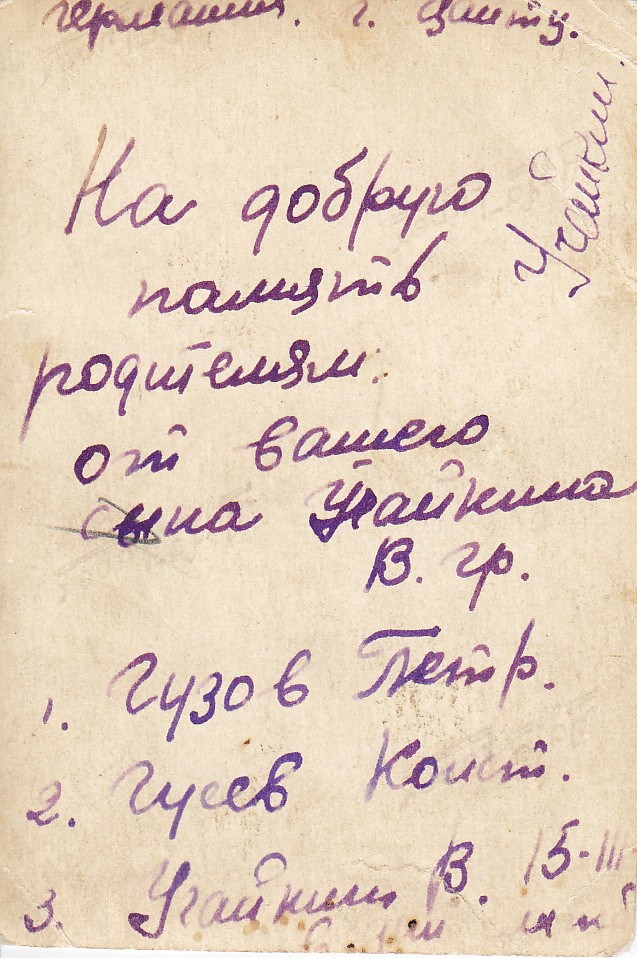 германия. г. цайтц.
Угайкин.
На добрую
память
родителям.
от вашего
сына Угайкина
В. гр.
1. Гузов Петр.
2. Гусев Конст.
3. Угайкин В. 15-III